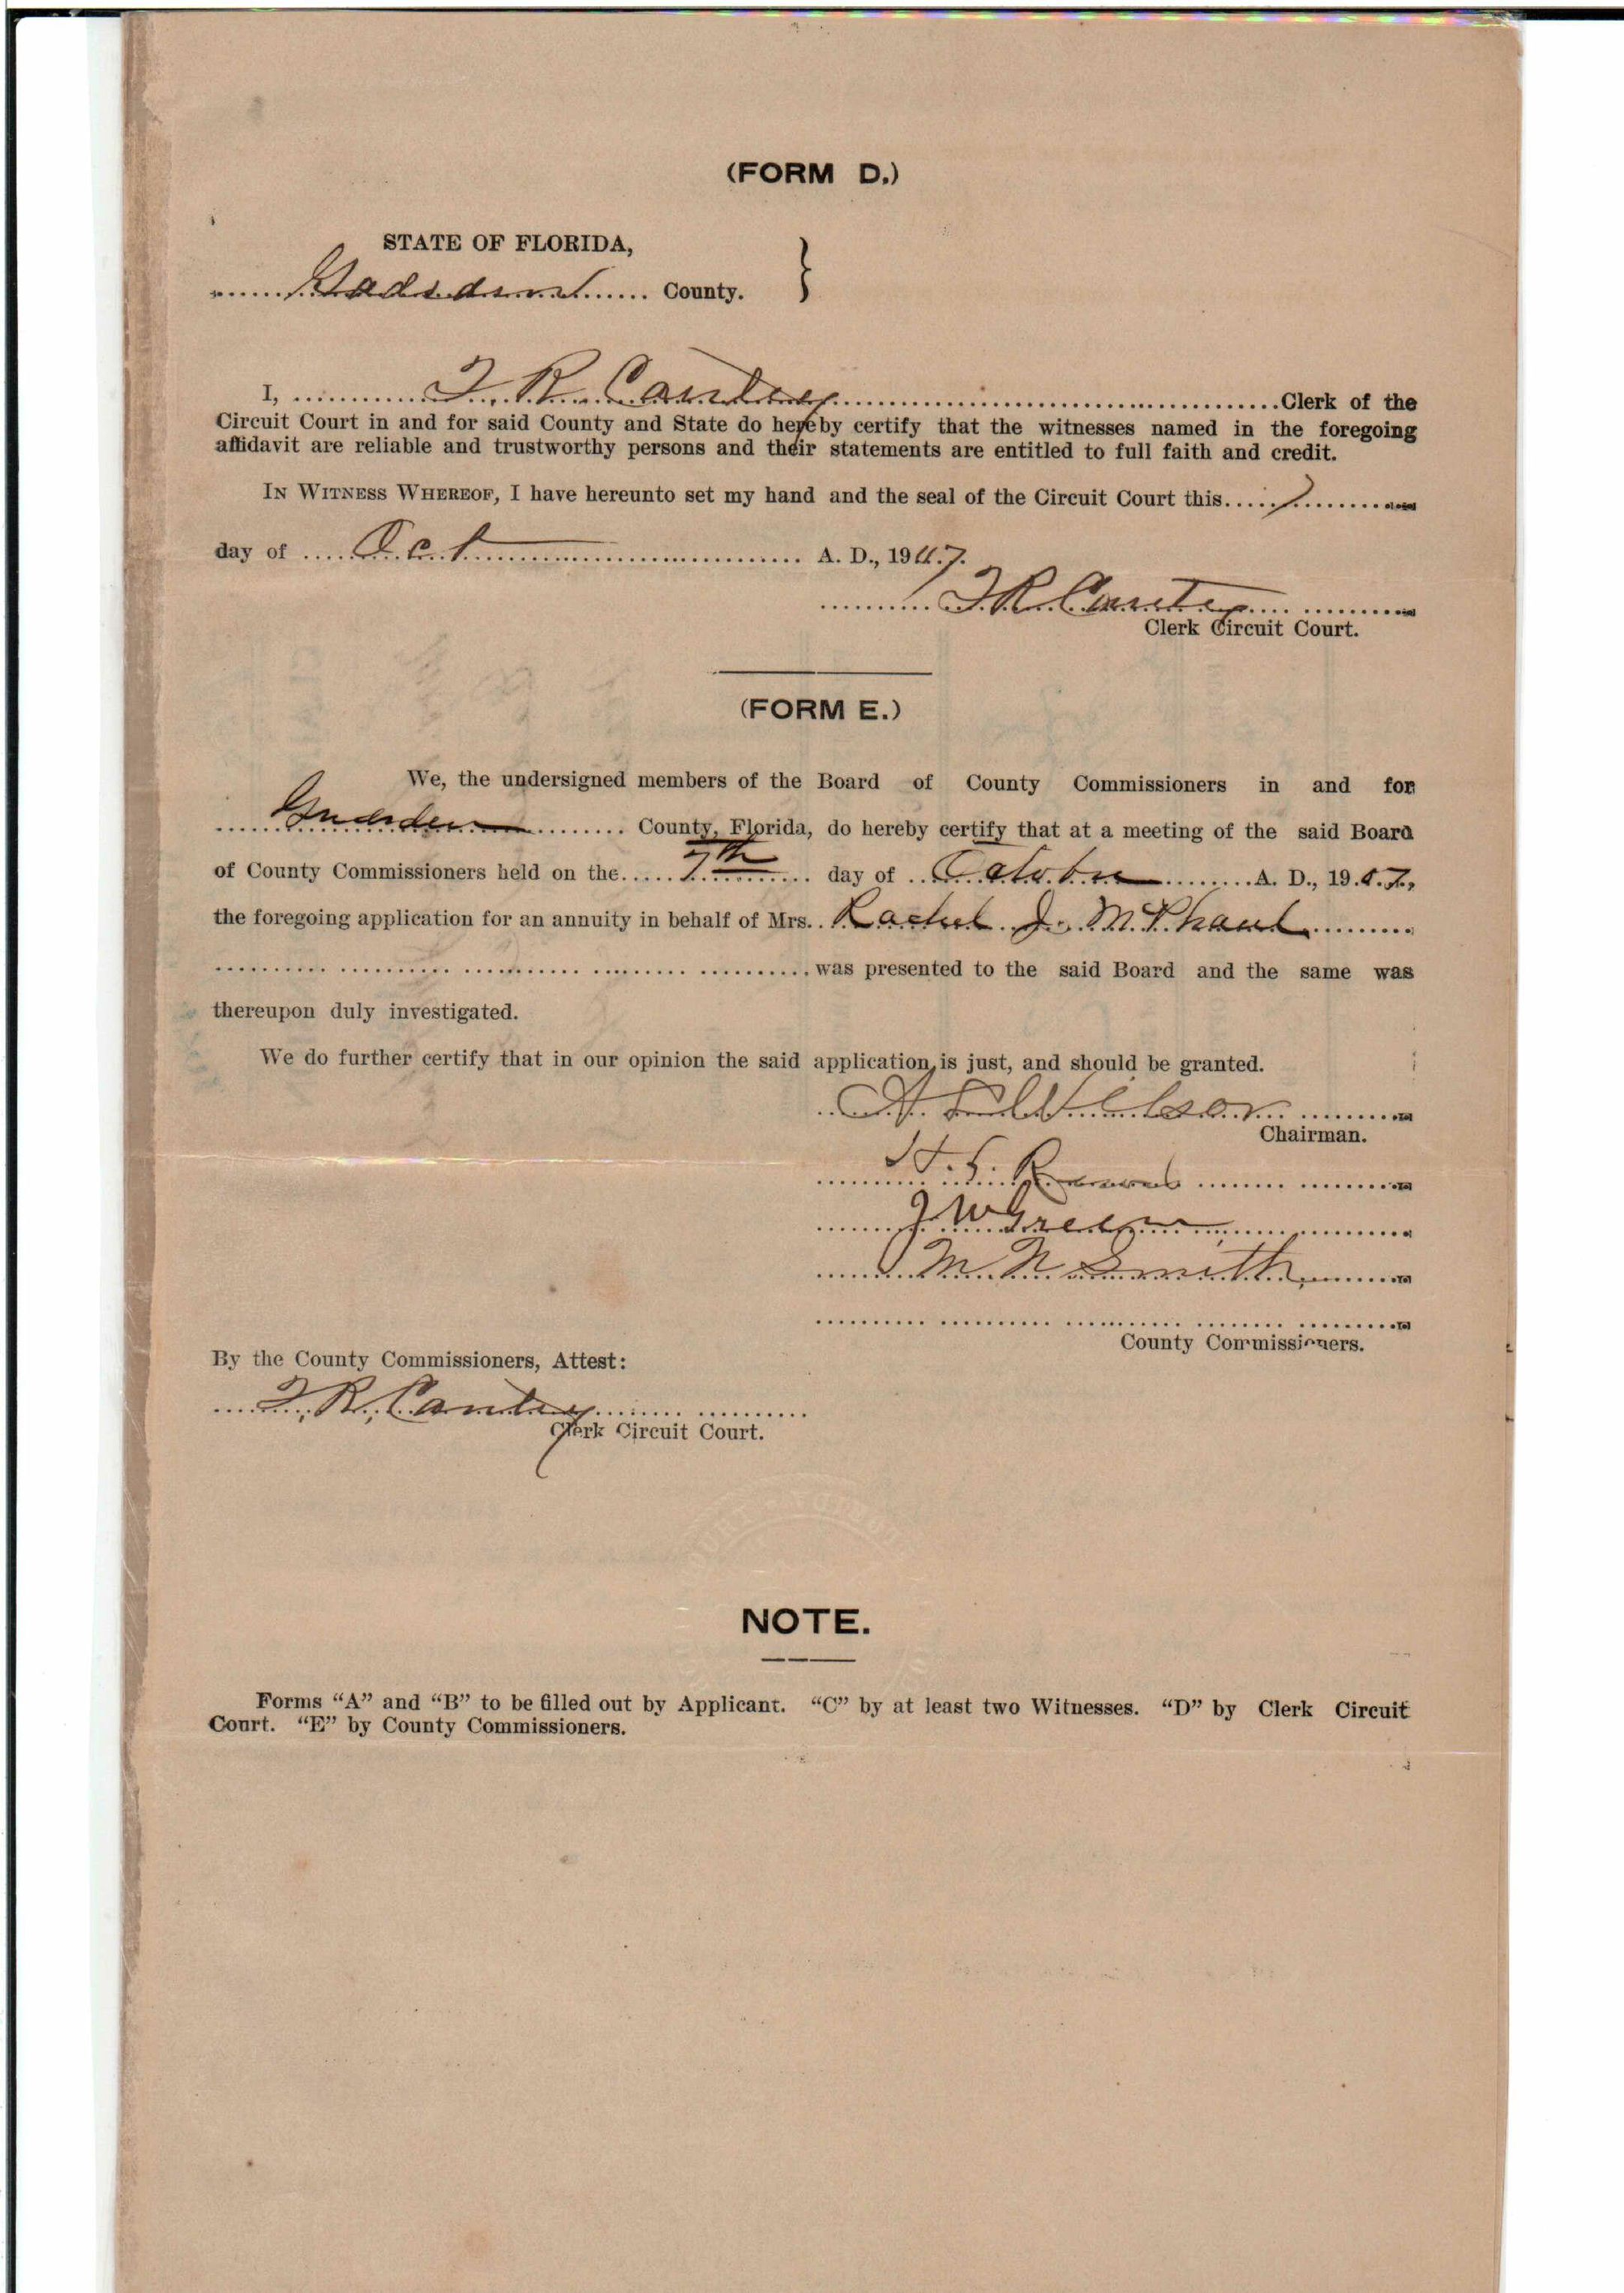 (FORM D.)
STATE OF FLORIDA,
Gadsden County. }
I, T. R. Cantey Clerk of the
Circuit Court in and for said County and State do hereby certify that the witnesses named in the foregoing
affidavit are reliable and trustworthy persons and their statements are entitled to full faith and credit.
IN WITNESS WHEREOF, I have hereunto set my hand and the seal of the Circuit Court this 7
day of Oct A. D., 1907.
T R Cantey
Clerk Circuit Court.
(FORM E.)
We, the undersigned members of the Board of County Commissioners in and for
Gadsden County, Florida, do hereby certify that at a meeting of the said Board
of County Commissioners held on the 7th day of October A. D., 1907,
the foregoing application for an annuity in behalf of Mrs. Rachel J. McPhaul
was presented to the said Board and the same was
thereupon duly investigated.
We do further certify that in our opinion the said application is just, and should be granted.
Wilson
Chairman.
J W Green
M. N Smith
County Commissioners.
By the County Commissioners, Attest:
T. R. Cantey
Clerk Circuit Court.
NOTE.
Forms “A” and “B” to be filled out by Applicant. “C” by at least two Witnesses. “D” by Clerk Circuit
Court. “E” by County Commissioners.